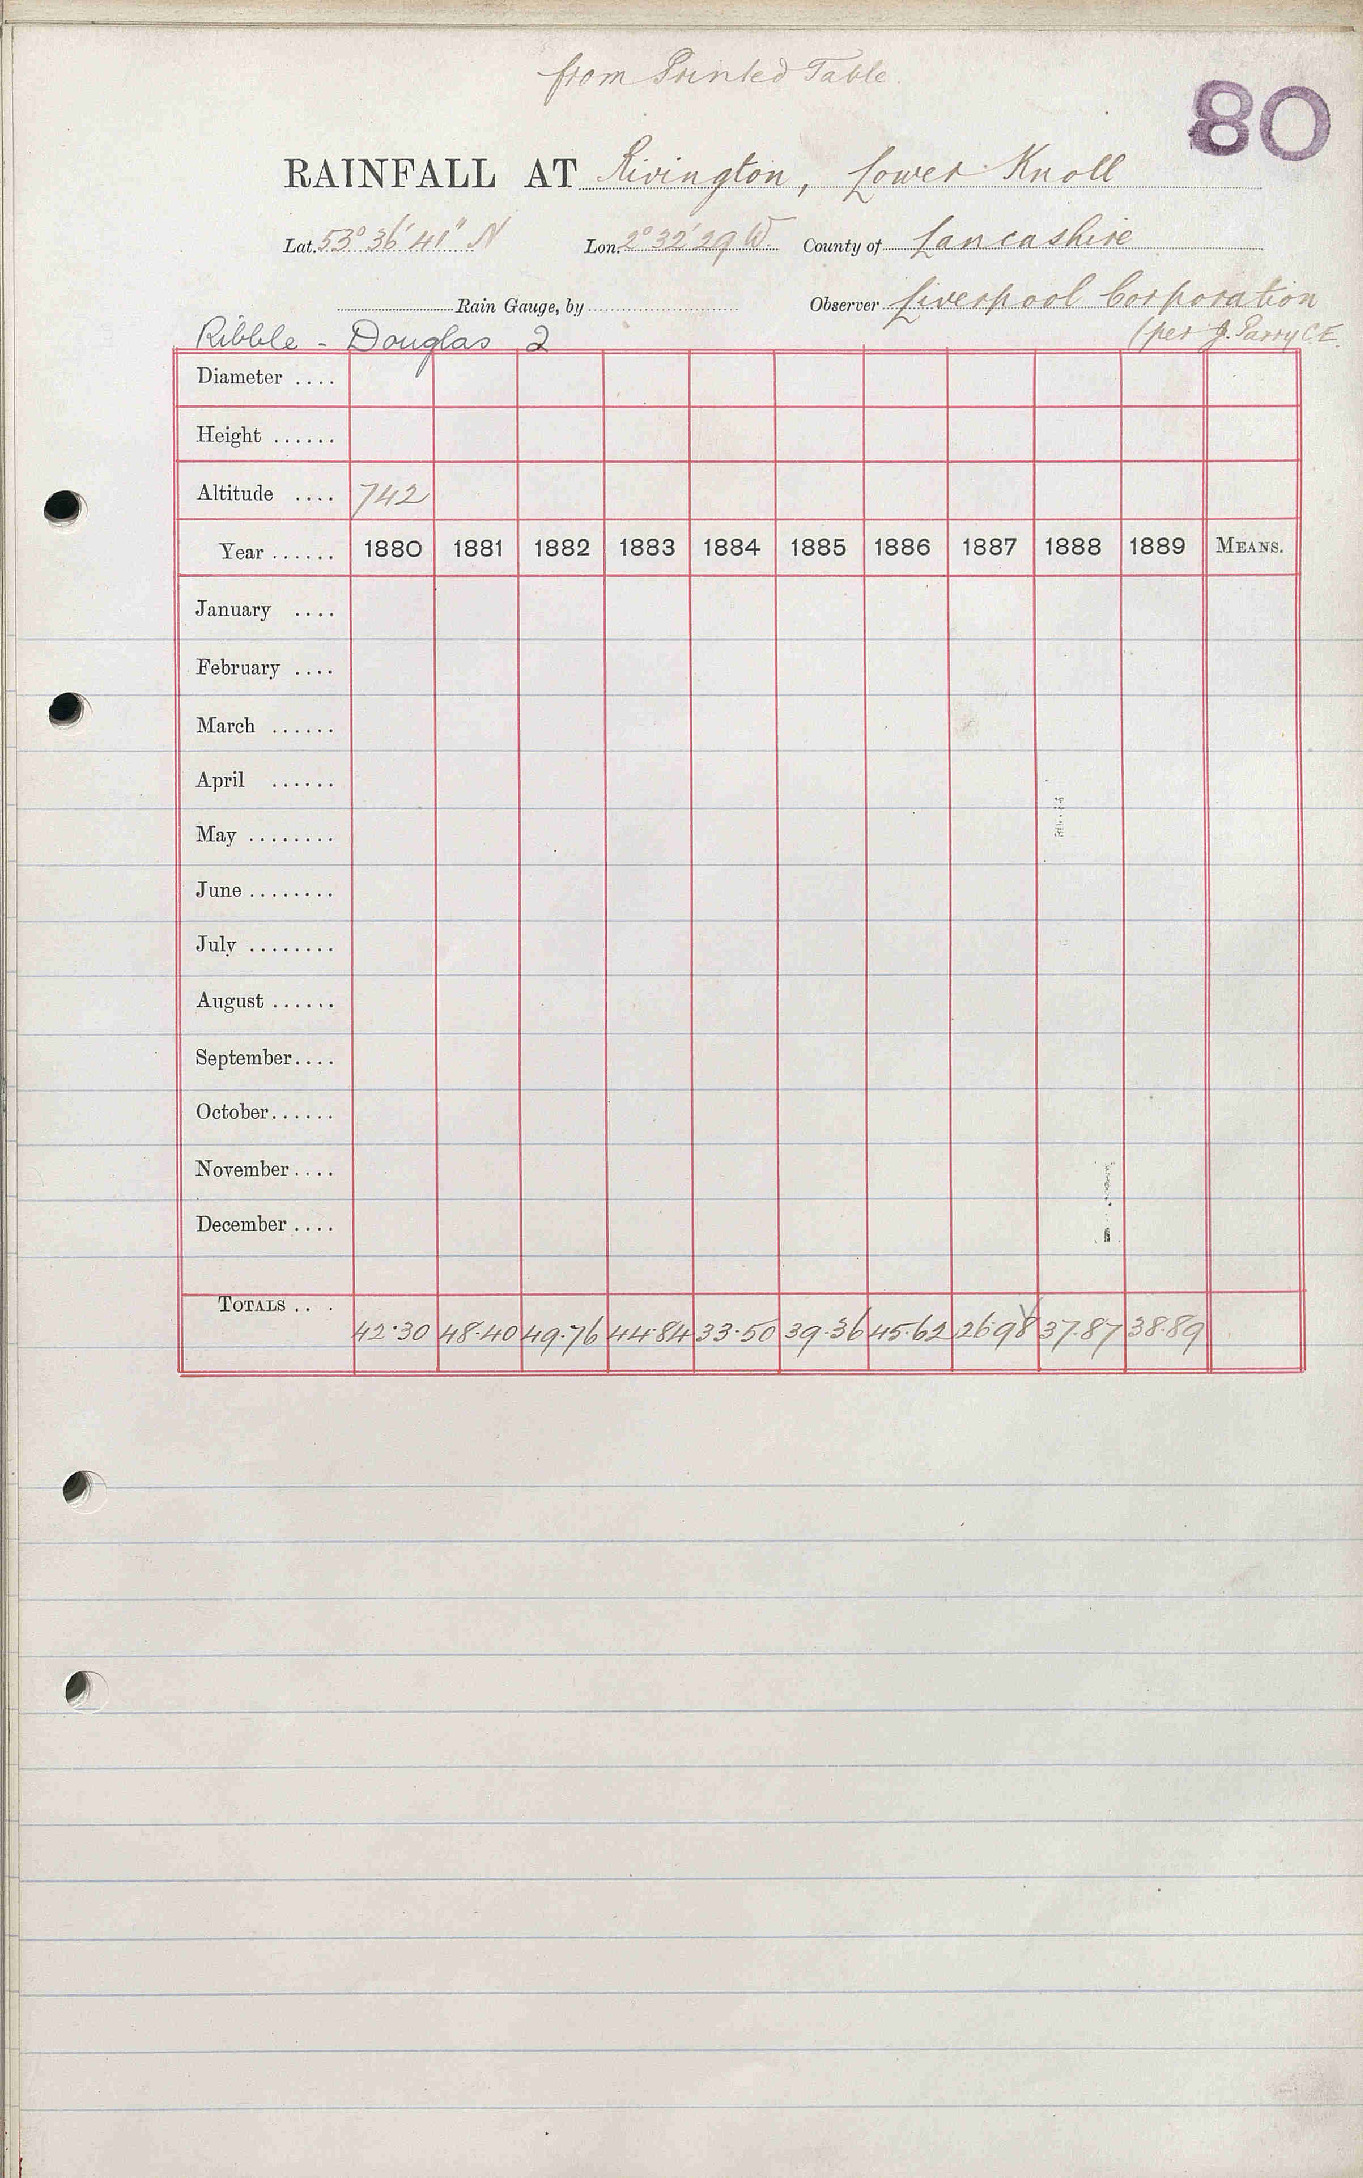 from Printed Table
80
RAINFALL AT Rivington, Lower Knoll
Lat. 53° 36' 41" N Lon. 2° 32' 29 W. County of Lancashire
Rain Gauge, by Observer Liverpool Corporation
(per J. Parry C.E.
Ribble - Douglas 2
Diameter ....
Height ......
Altitude .... 742
Year ...... 1880 1881 1882 1883 1884 1885 1886 1887 1888 1889 MEANS.
January ....
February ....
March ......
April ......
May ........
June ........
July ........
August ......
September....
October......
November....
December....
TOTALS ...
42.30 48.40 49.76 44.84 33.50 39.36 45.62 26.98 37.87 38.89